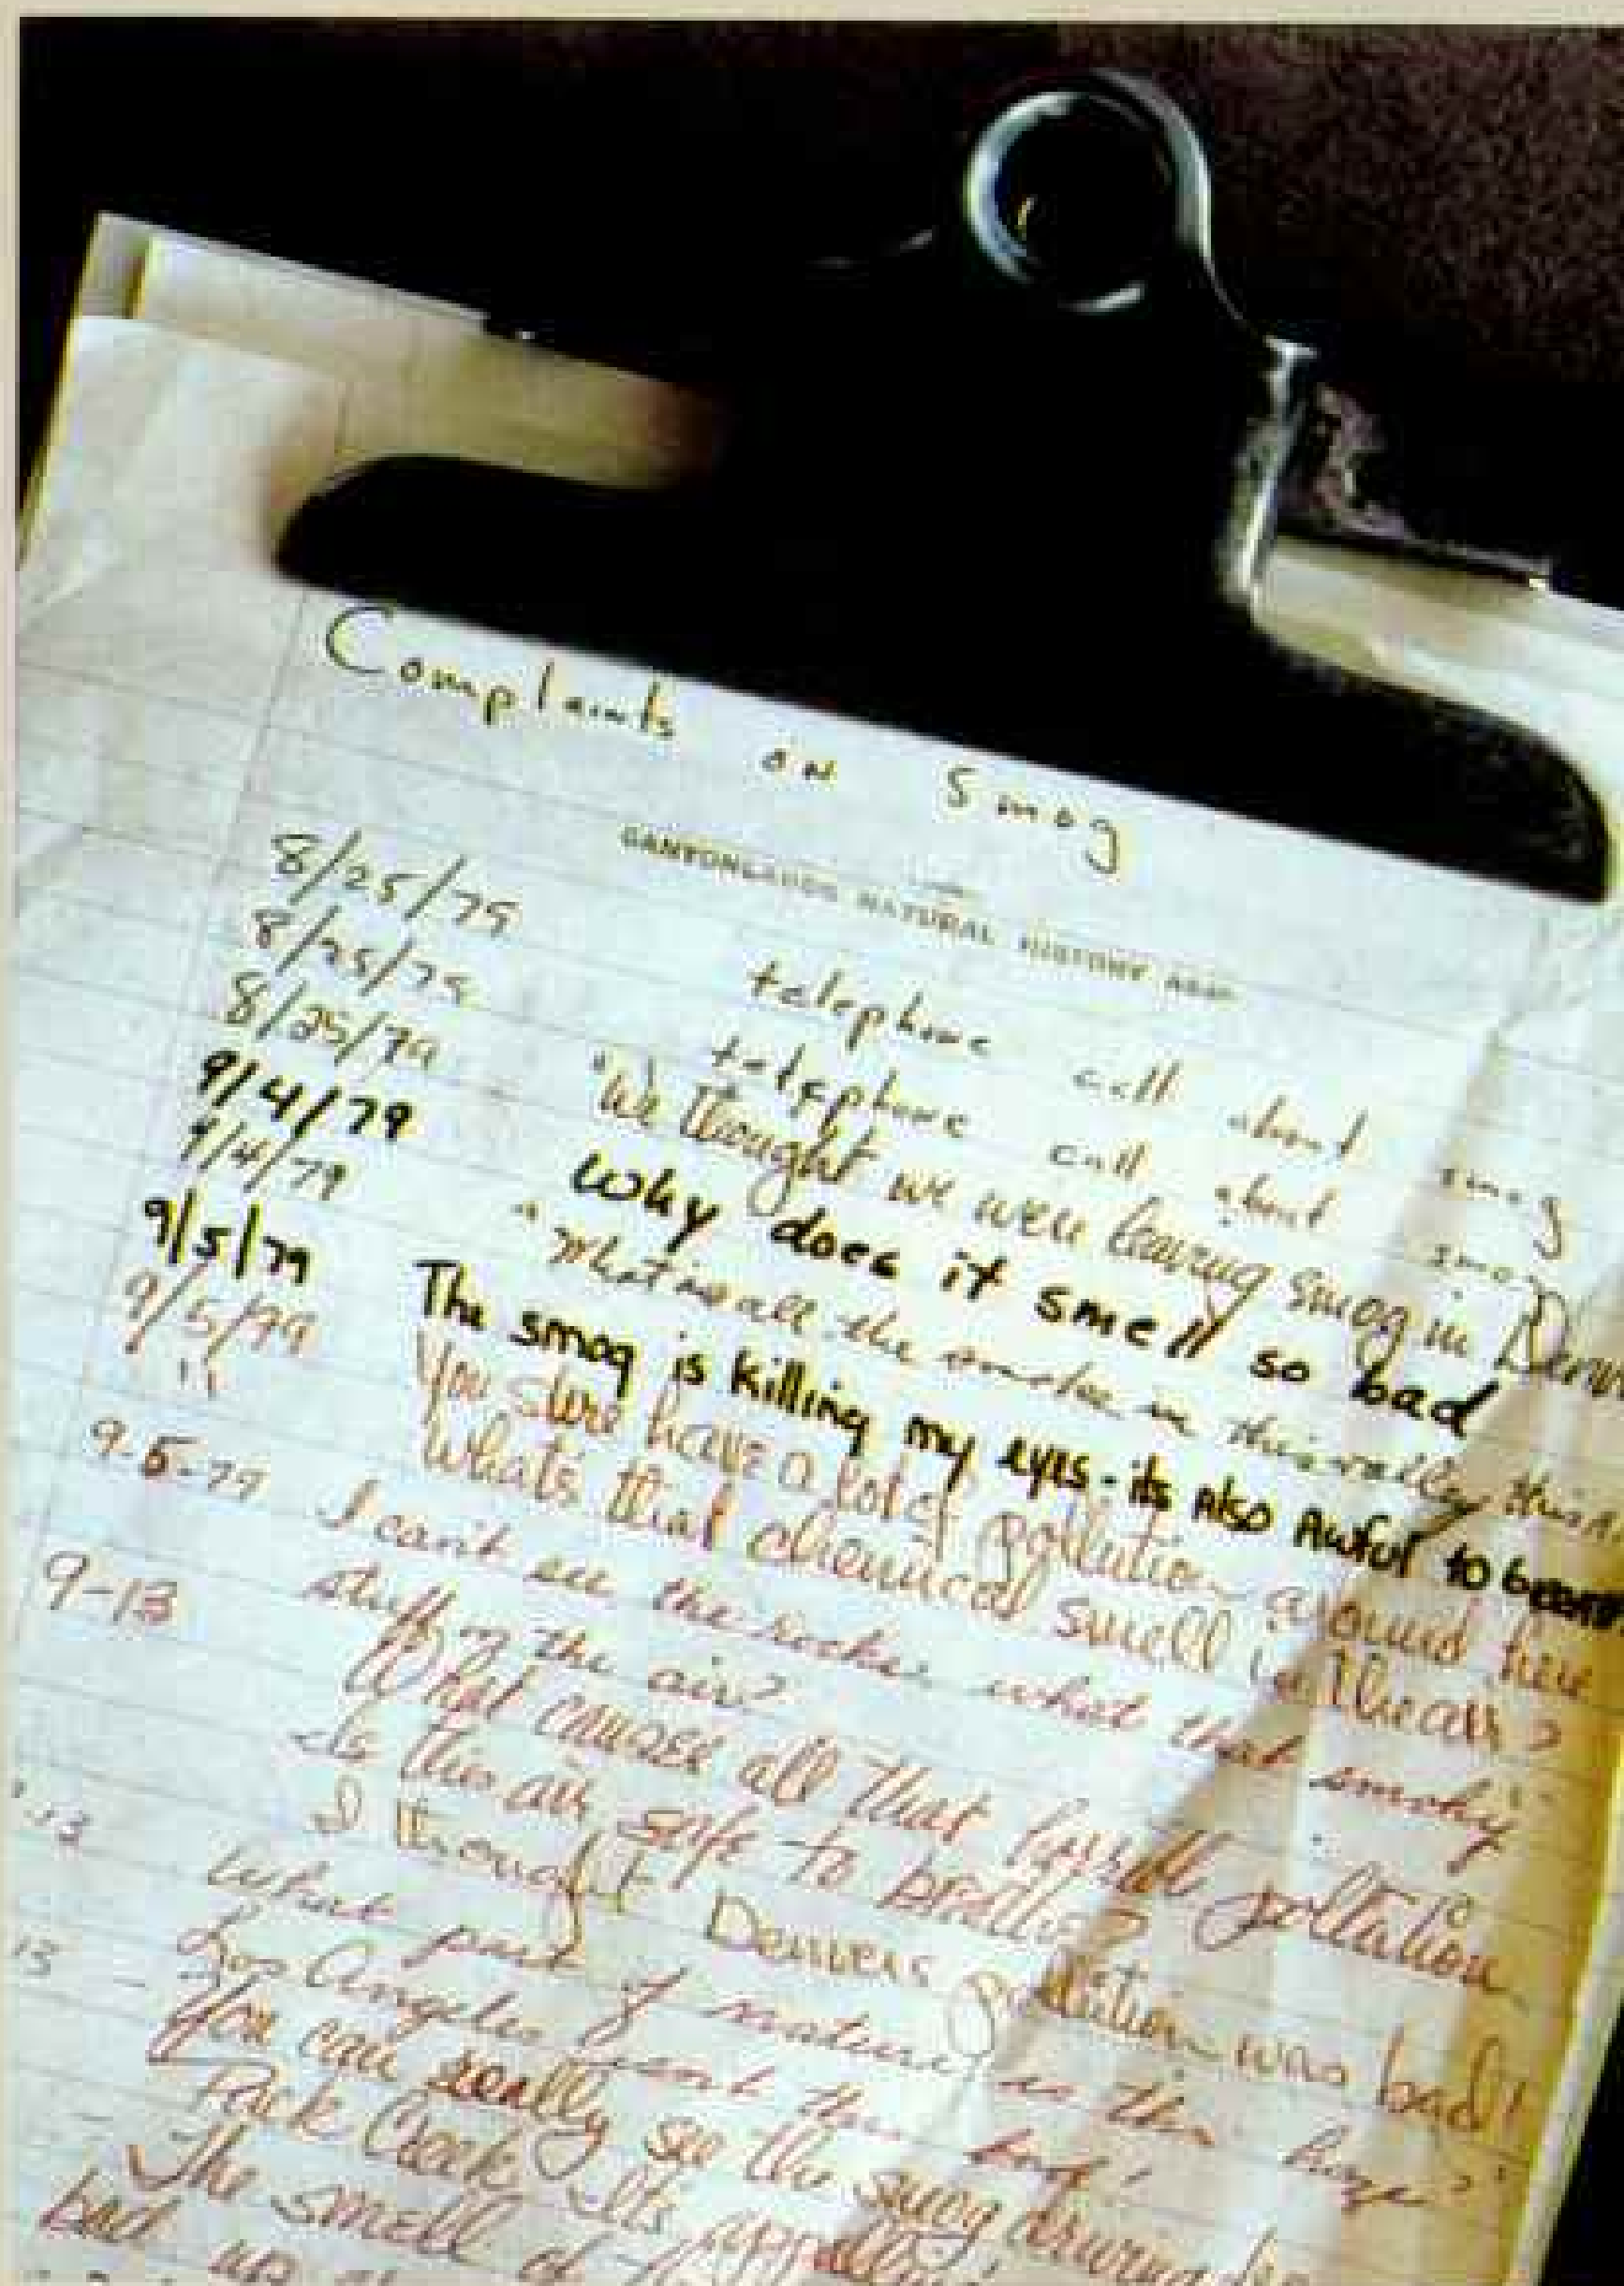 Complaints on Smog
CANYONLANDS NATURAL HISTORY ASSN.
8/25/79 telephone call about smog
8/25/79 telephone call about smog
8/25/79 "We thought we were leaving smog in Denver
9/4/79 Why does it smell so bad
9/4/79 "What is all the smoke in this valley this
9/5/79 The smog is killing my eyes - its also Awful to
9/5/79 You sure have a lot of pollution around here
" Whats that chemical smell in the air?
9-5-79 I can't see the rocks what that smoky
stuff in the air?
9-13 What causes all that pollution
Is this air safe to breathe?
I thought Denvers pollution was bad!
What part of nature is this haze?"
13 - Los Angeles isn't this bad!
You can really see the smog driving
Pack Creek Its appalling!
The smell of
bad